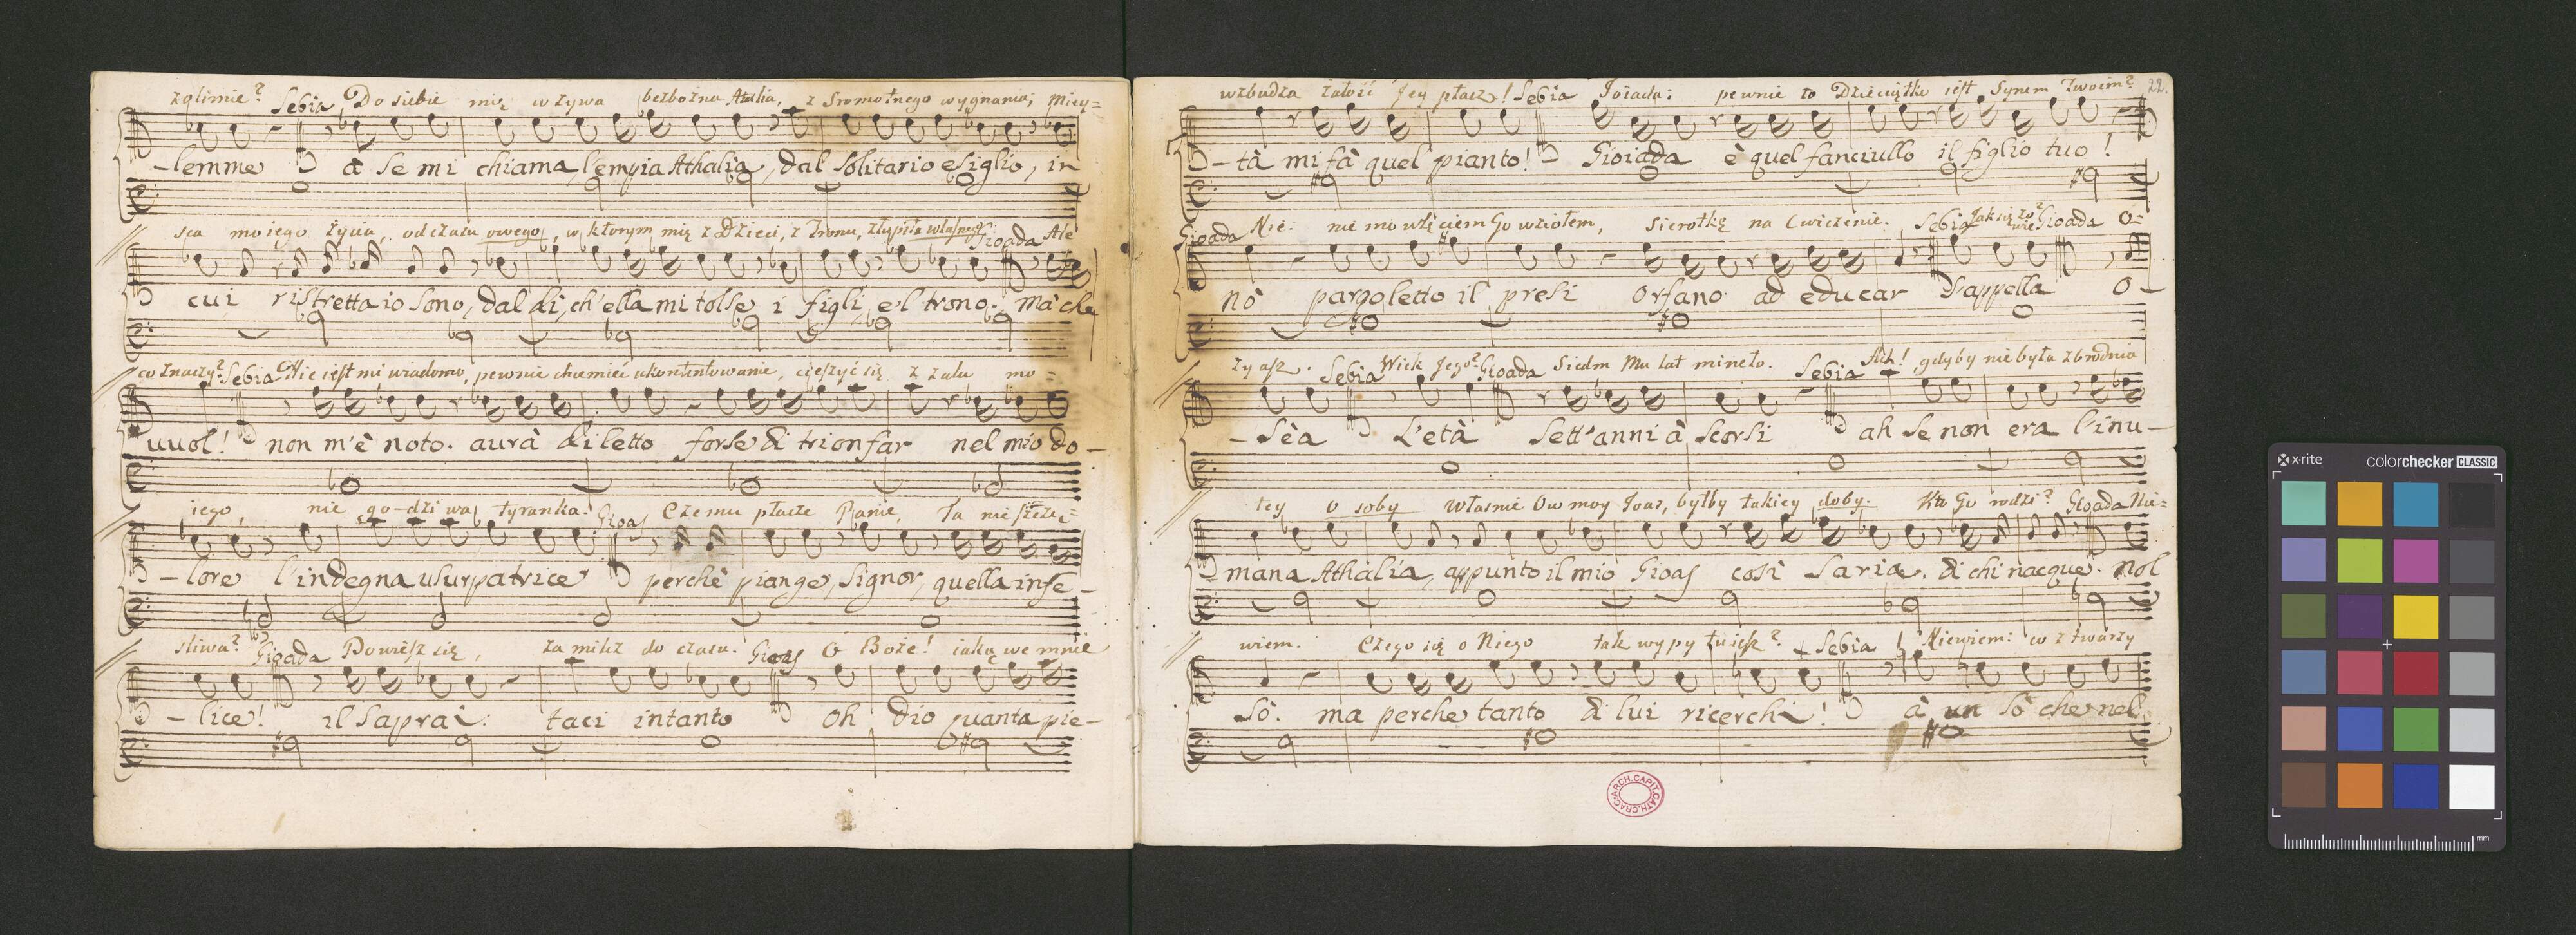 zolimie? Sebia Do siebie mię wzywa bezbożna Atalia, z Sromotnego wygnania, miey=
-lemme à se mi chiama l'empia Athalia, dal solitario esiglio, in
sca moiego życia, od czasu owego, w którym mię z Dzieci, z Tronu, złupiła własnego Gioada Ale
cui ristretta io sono, dal dì, ch'ella mi tolse i figli, e'l trono. mà che
co znaczy? Sebia Nie iest mi wiadomo, pewnie chce mieć ukontentowanie, cieszyć się z żalu mo=
vuol! non m'è noto. avrà diletto forse di trionfar nel mio do-
iego, nie go-dziwa tyranka. Gioas Czemu płacze Panie, Ta nieszczę=
-lore l'indegna usurpatrice perchè piange, signor, quella infe-
śliwa? Gioada Dowiesz się, zamilcz do czasu. Gioas O Boże! iaką we mnie
-lice! il saprai: taci intanto oh dio quanta pie-
wzbudza żałość Jey płacz! Sebia Joiada: pewnie to Dzieciątko iest Synem Twoim? 22.
-tà mi fà quel pianto! Gioiada è quel fanciullo il figlio tuo!
Gioada Nie: niemowlęciem Go wziołem, sierotkę na cwiczenie. Sebia Jak się zowie? Gioada O=
nò pargoletto il presi orfano ad educar s'appella O-
zyasz. Sebia Wiek Jego? Gioada Siedm Mu lat mineło. Sebia Ach! gdyby nie była zbrodnia
-sèa L'età sett'anni à scorsi ah se non era l'inu-
tey osoby właśnie Ow moy Joas, byłby takiey doby. Kto Go rodzi? Gioada Nie=
mana Athalia, appunto il mio Gioas così saria. di chi nacque. nol
wiem. Czego się o Niego tak wypytuiesz? Sebia Niewiem: co z twarzy
sò. ma perche tanto di lui ricerchi! à un sò che nel
x-rite colorchecker CLASSIC
mm
ARCH. CAPIT. CATH. CRAC.